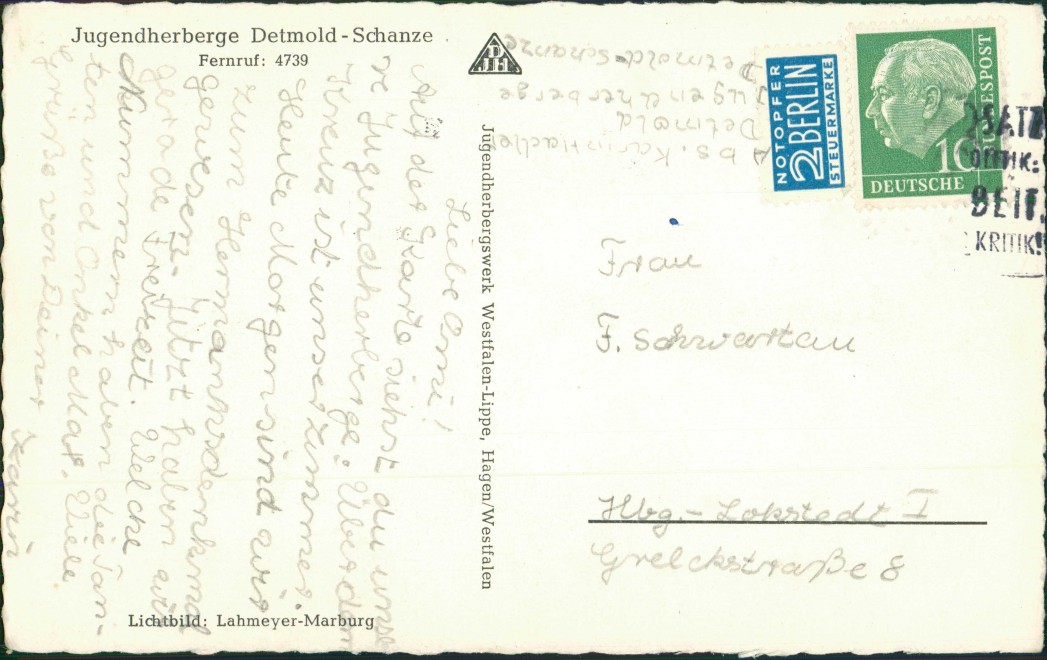 Jugendherberge Detmold-Schanze
Fernruf: 4739
DJH
Liebe Omi!
Auf der Karte siehst du unse-
re Jugendherberge. Über dem
Kreuz ist unser Zimmer.
Heute Morgen sind wir
zum Hermannsdenkmal
gewesen. Jetzt haben wir
gerade Freizeit. Welche
Nummern haben die Tan-
ten und Onkel Max. Viele
Grüße von Deiner
Karin
Lichtbild: Lahmeyer-Marburg
Jugendherbergswerk Westfalen-Lippe, Hagen/Westfalen
Abs. Karin
Detmold
Jugendherberge
Detmold-Schanze
NOTOPFER
2 BERLIN
STEUERMARKE
10
DEUTSCHE
BUNDESPOST
KRITIK!
Frau
F. Schwartau
Hbg.-Lokstedt I
Grelckstraße 8